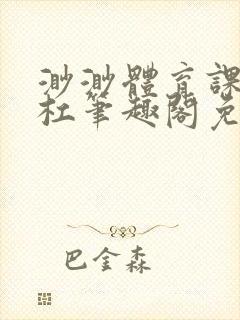 渺渺體育課
杜笔趣閣免
巴金森